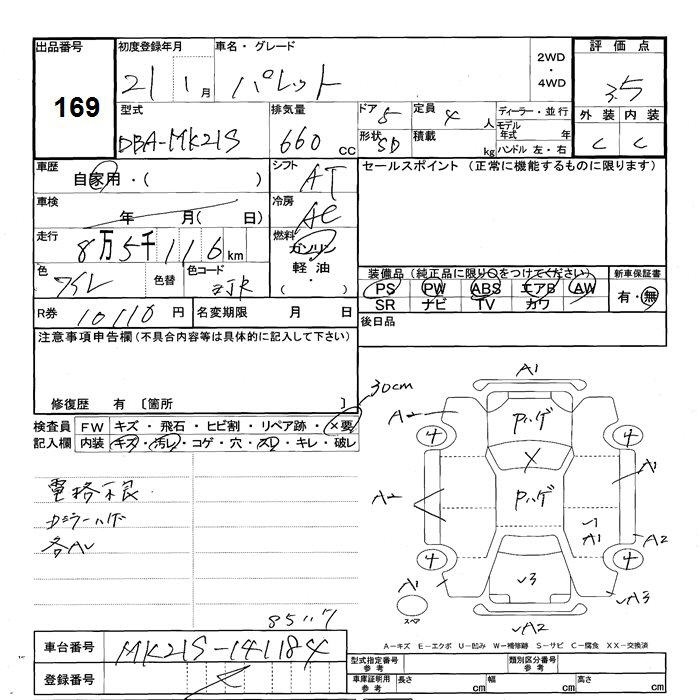 出品番号
169
初度登録年月
21 1月
車名・グレード
パレット
2WD
・
4WD
評価点
3.5
外装 内装
C C
型式
DBA-MK21S
排気量
660 cc
ドア 5
形状 5D
定員 4 人
積載 kg
ディーラー・並行
モデル年式 年
ハンドル 左・右
車歴
自家用・( )
シフト
AT
車検
年 月( 日)
冷房
AC
走行
8万5千116km
燃料
ガソリン
軽油
( ・ )
色
色替
色コード
ZJR
R券 10110 円
名変期限 月 日
セールスポイント (正常に機能するものに限ります)
装備品(純正品に限り○をつけてください)
PS PW ABS エアB AW
SR ナビ TV カワ
新車保証書
有・無
後日品
注意事項申告欄(不具合内容等は具体的に記入して下さい)
修復歴 有 〔箇所 〕
検査員記入欄
FW キズ・飛石・ヒビ割・リペア跡・×要
内装 キズ・汚レ・コゲ・穴・スレ・キレ・破レ
30cm
電格不良
各AU
85117
A1
A2
ハゲ
4
4
X
A1
A2
ハゲ
A1
A2
4
4
A1
3
A3
A2
スペア
車台番号
MK21S-141184
登録番号
A-キズ E-エクボ U-凹み W-補修跡 S-サビ C-腐食 XX-交換済
型式指定番号 参考
類別区分番号 参考
車庫証明用 参考
長さ cm
幅 cm
高さ cm